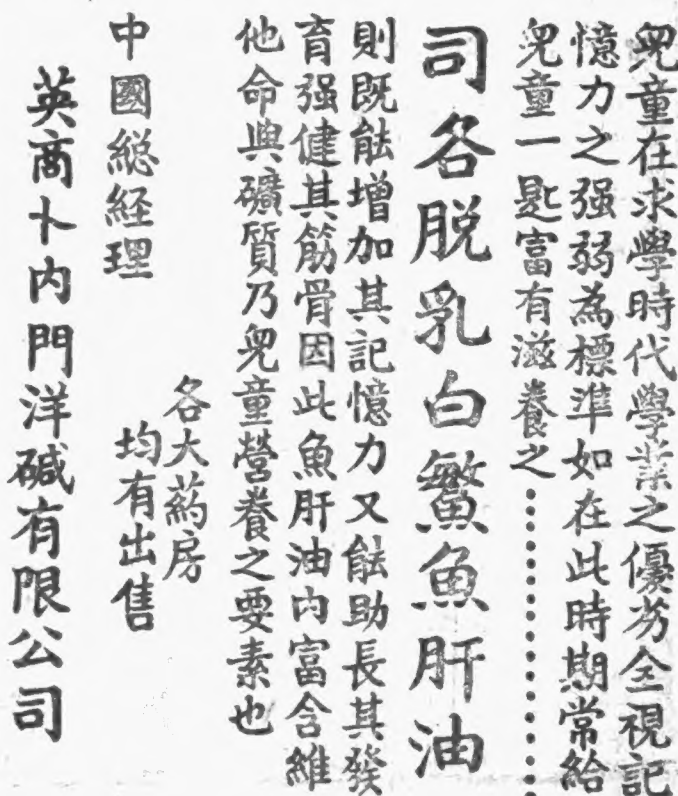 兒童在求學時代學業之優劣全視記
憶力之强弱為標準如在此時期常給
兒童一匙富有滋養之⋯⋯⋯⋯
司各脱乳白鰵魚肝油
則既能增加其記憶力又能助長其發
育强健其筋骨因此魚肝油内富含維
他命與礦質乃兒童營養之要素也
各大葯房
均有出售
中國総経理
英商卜内門洋碱有限公司